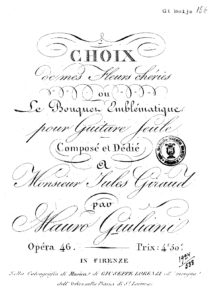 CHOIX
de mes Fleurs chéries
ou
Le Bouquet Emblématique
pour Guitare seule
Composé et Dédié
A
Monsieur Jules Giraud
par
Mauro Giuliani
Opéra 46.
Prix: 4'50.
IN FIRENZE
Nella Calcografia di Musica di GIUSEPPE LORENZI
dell'Orto alla Piazza di S. Lorenzo.